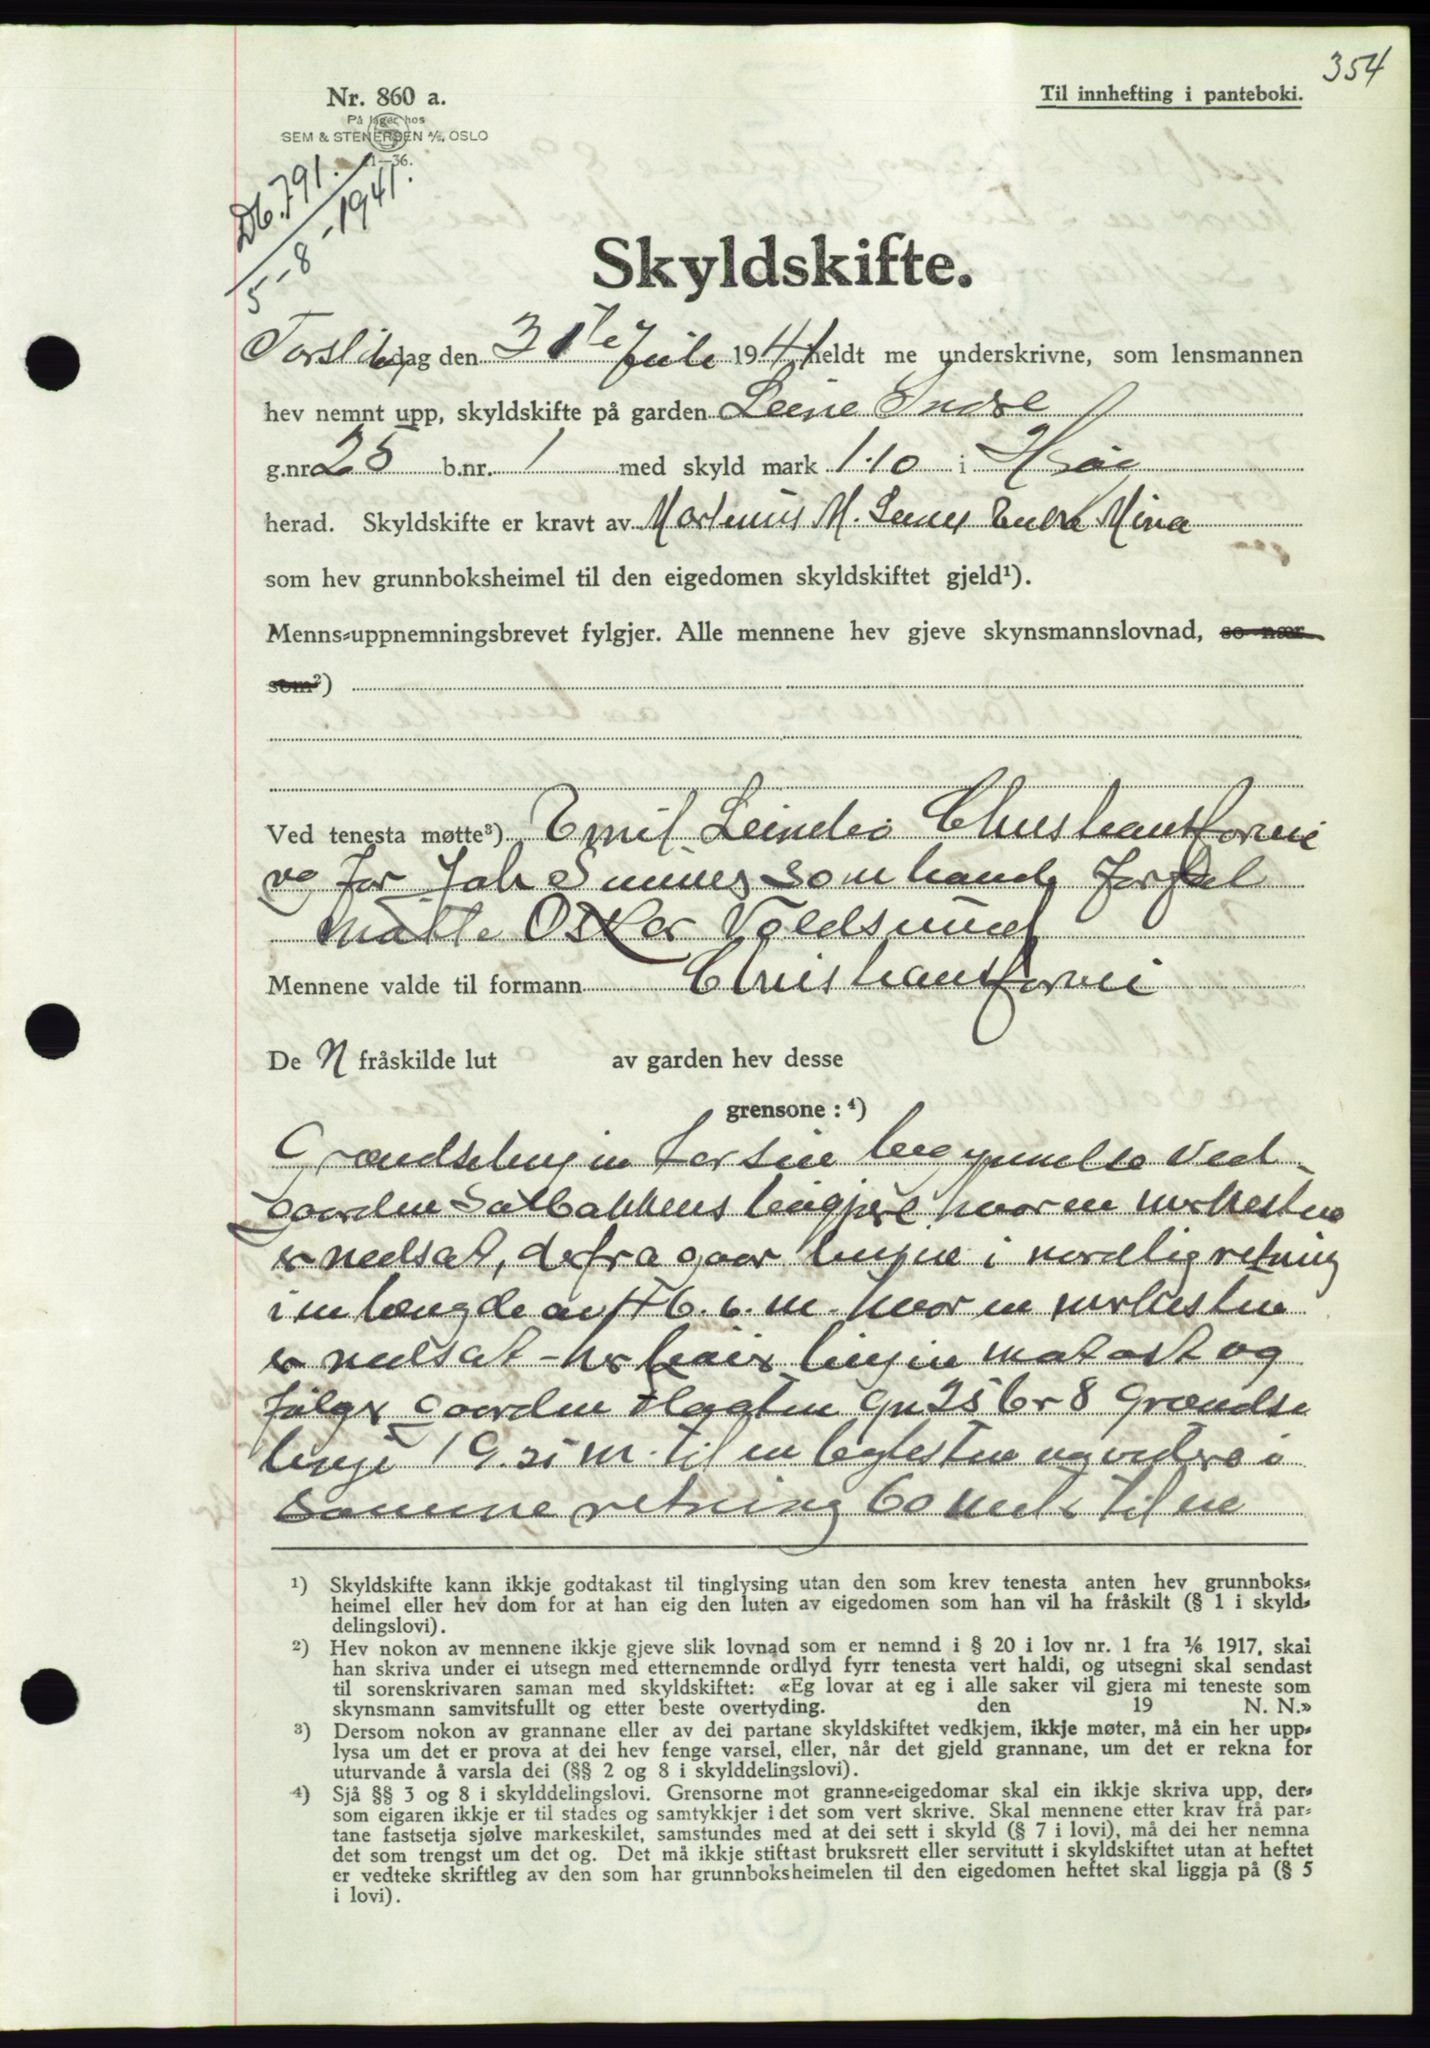 354
Nr. 860 a.
Til innhefting i panteboki.
På lager hos
SEM & STENERSEN A/S, OSLO
11—36.
Db. 791.
5-8-1941.
Skyldskifte.
dag den 31te Juli 1941 heldt me underskrivne, som lensmannen
hev nemnt upp, skyldskifte på garden Leine Indre
g.nr. 25 b.nr. 1 med skyld mark 1.10 i
herad. Skyldskifte er kravt av M.
som hev grunnboksheimel til den eigedomen skyldskiftet gjeld¹).
Menns-uppnemningsbrevet fylgjer. Alle mennene hev gjeve skynsmannslovnad, so nær
som²)
Ved tenesta møtte³) Emil
og for som hands
møtte Oskar Voldsund
Mennene valde til formann
De N fråskilde lut av garden hev desse
grensone: ⁴)
begynnelse ved
gaarden hvor en merkesten
er nedsat, defra gaar linjne i nordlig retning
i en længde av 46.6. m. hvor en merkesten
er nedsat - her linjen mot ost og
følger gaarden gn 25 br 8 Grændse
linje 19.25 m. til en og videre i
samme retning 60 til en
¹) Skyldskifte kann ikkje godtakast til tinglysing utan den som krev tenesta anten hev grunnboks-
heimel eller hev dom for at han eig den luten av eigedomen som han vil ha fråskilt (§ 1 i skyld-
delingslovi).
²) Hev nokon av mennene ikkje gjeve slik lovnad som er nemnd i § 20 i lov nr. 1 fra 1/6 1917, skal
han skriva under ei utsegn med etternemnde ordlyd fyrr tenesta vert haldi, og utsegni skal sendast
til sorenskrivaren saman med skyldskiftet: «Eg lovar at eg i alle saker vil gjera mi teneste som
skynsmann samvitsfullt og etter beste overtyding. den 19 N. N.»
³) Dersom nokon av grannane eller av dei partane skyldskiftet vedkjem, ikkje møter, må ein her upp-
lysa um det er prova at dei hev fenge varsel, eller, når det gjeld grannane, um det er rekna for
uturvande å varsla dei (§§ 2 og 8 i skylddelingslovi).
⁴) Sjå §§ 3 og 8 i skylddelingslovi. Grensorne mot granne-eigedomar skal ein ikkje skriva upp, der-
som eigaren ikkje er til stades og samtykkjer i det som vert skrive. Skal mennene etter krav frå par-
tane fastsetja sjølve markeskilet, samstundes med at dei sett i skyld (§ 7 i lovi), må dei her nemna
det som trengst um det og. Det må ikkje stiftast bruksrett eller servitutt i skyldskiftet utan at heftet
er vedteke skriftleg av den som har grunnboksheimelen til den eigedomen heftet skal liggja på (§ 5
i lovi).